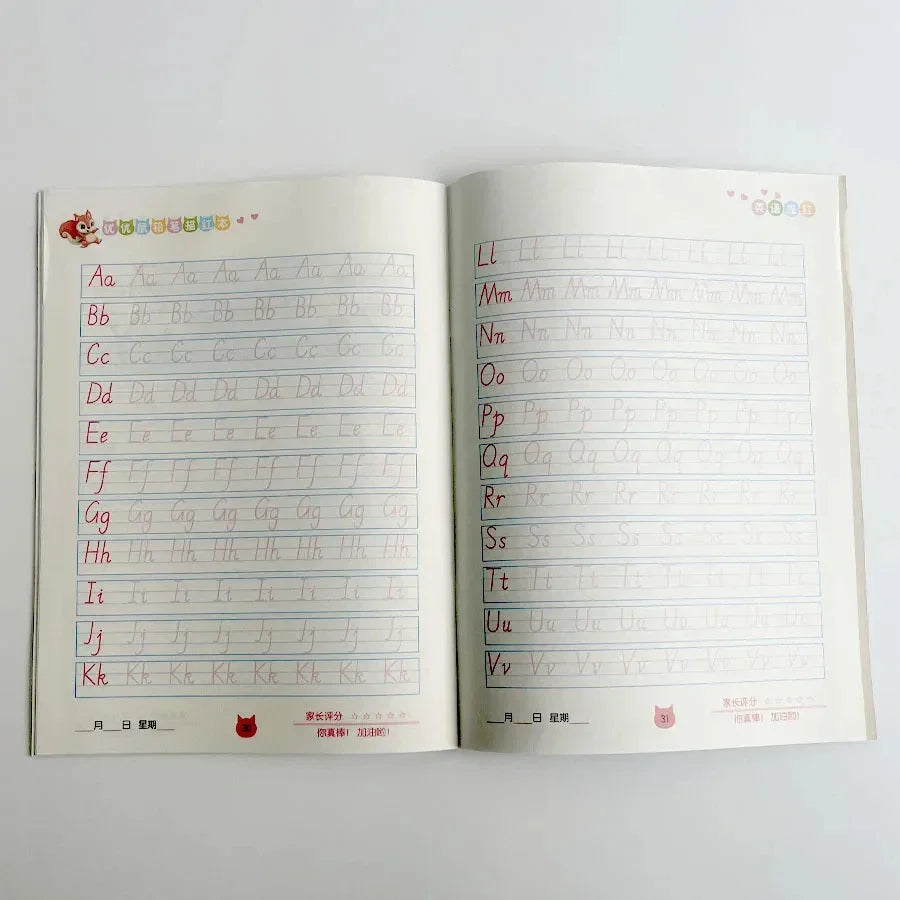 优优熊铅笔描红本
Aa Aa Aa Aa Aa Aa Aa Aa
Bb Bb Bb Bb Bb Bb Bb Bb
Cc Cc Cc Cc Cc Cc Cc Cc
Dd Dd Dd Dd Dd Dd Dd Dd
Ee Ee Ee Ee Ee Ee Ee Ee
Ff Ff Ff Ff Ff Ff Ff Ff
Gg Gg Gg Gg Gg Gg Gg Gg
Hh Hh Hh Hh Hh Hh Hh Hh
Ii Ii Ii Ii Ii Ii Ii Ii
Jj Jj Jj Jj Jj Jj Jj Jj
Kk Kk Kk Kk Kk Kk Kk Kk
月 日 星期
30
家长评分 ☆☆☆☆☆
你真棒! 加油啦!
英语描红
Ll Ll Ll Ll Ll Ll Ll Ll
Mm Mm Mm Mm Mm Mm Mm Mm
Nn Nn Nn Nn Nn Nn Nn Nn
Oo Oo Oo Oo Oo Oo Oo Oo
Pp Pp Pp Pp Pp Pp Pp Pp
Qq Qq Qq Qq Qq Qq Qq Qq
Rr Rr Rr Rr Rr Rr Rr Rr
Ss Ss Ss Ss Ss Ss Ss Ss
Tt Tt Tt Tt Tt Tt Tt Tt
Uu Uu Uu Uu Uu Uu Uu Uu
Vv Vv Vv Vv Vv Vv Vv Vv
月 日 星期
31
家长评分 ☆☆☆☆☆
你真棒! 加油啦!